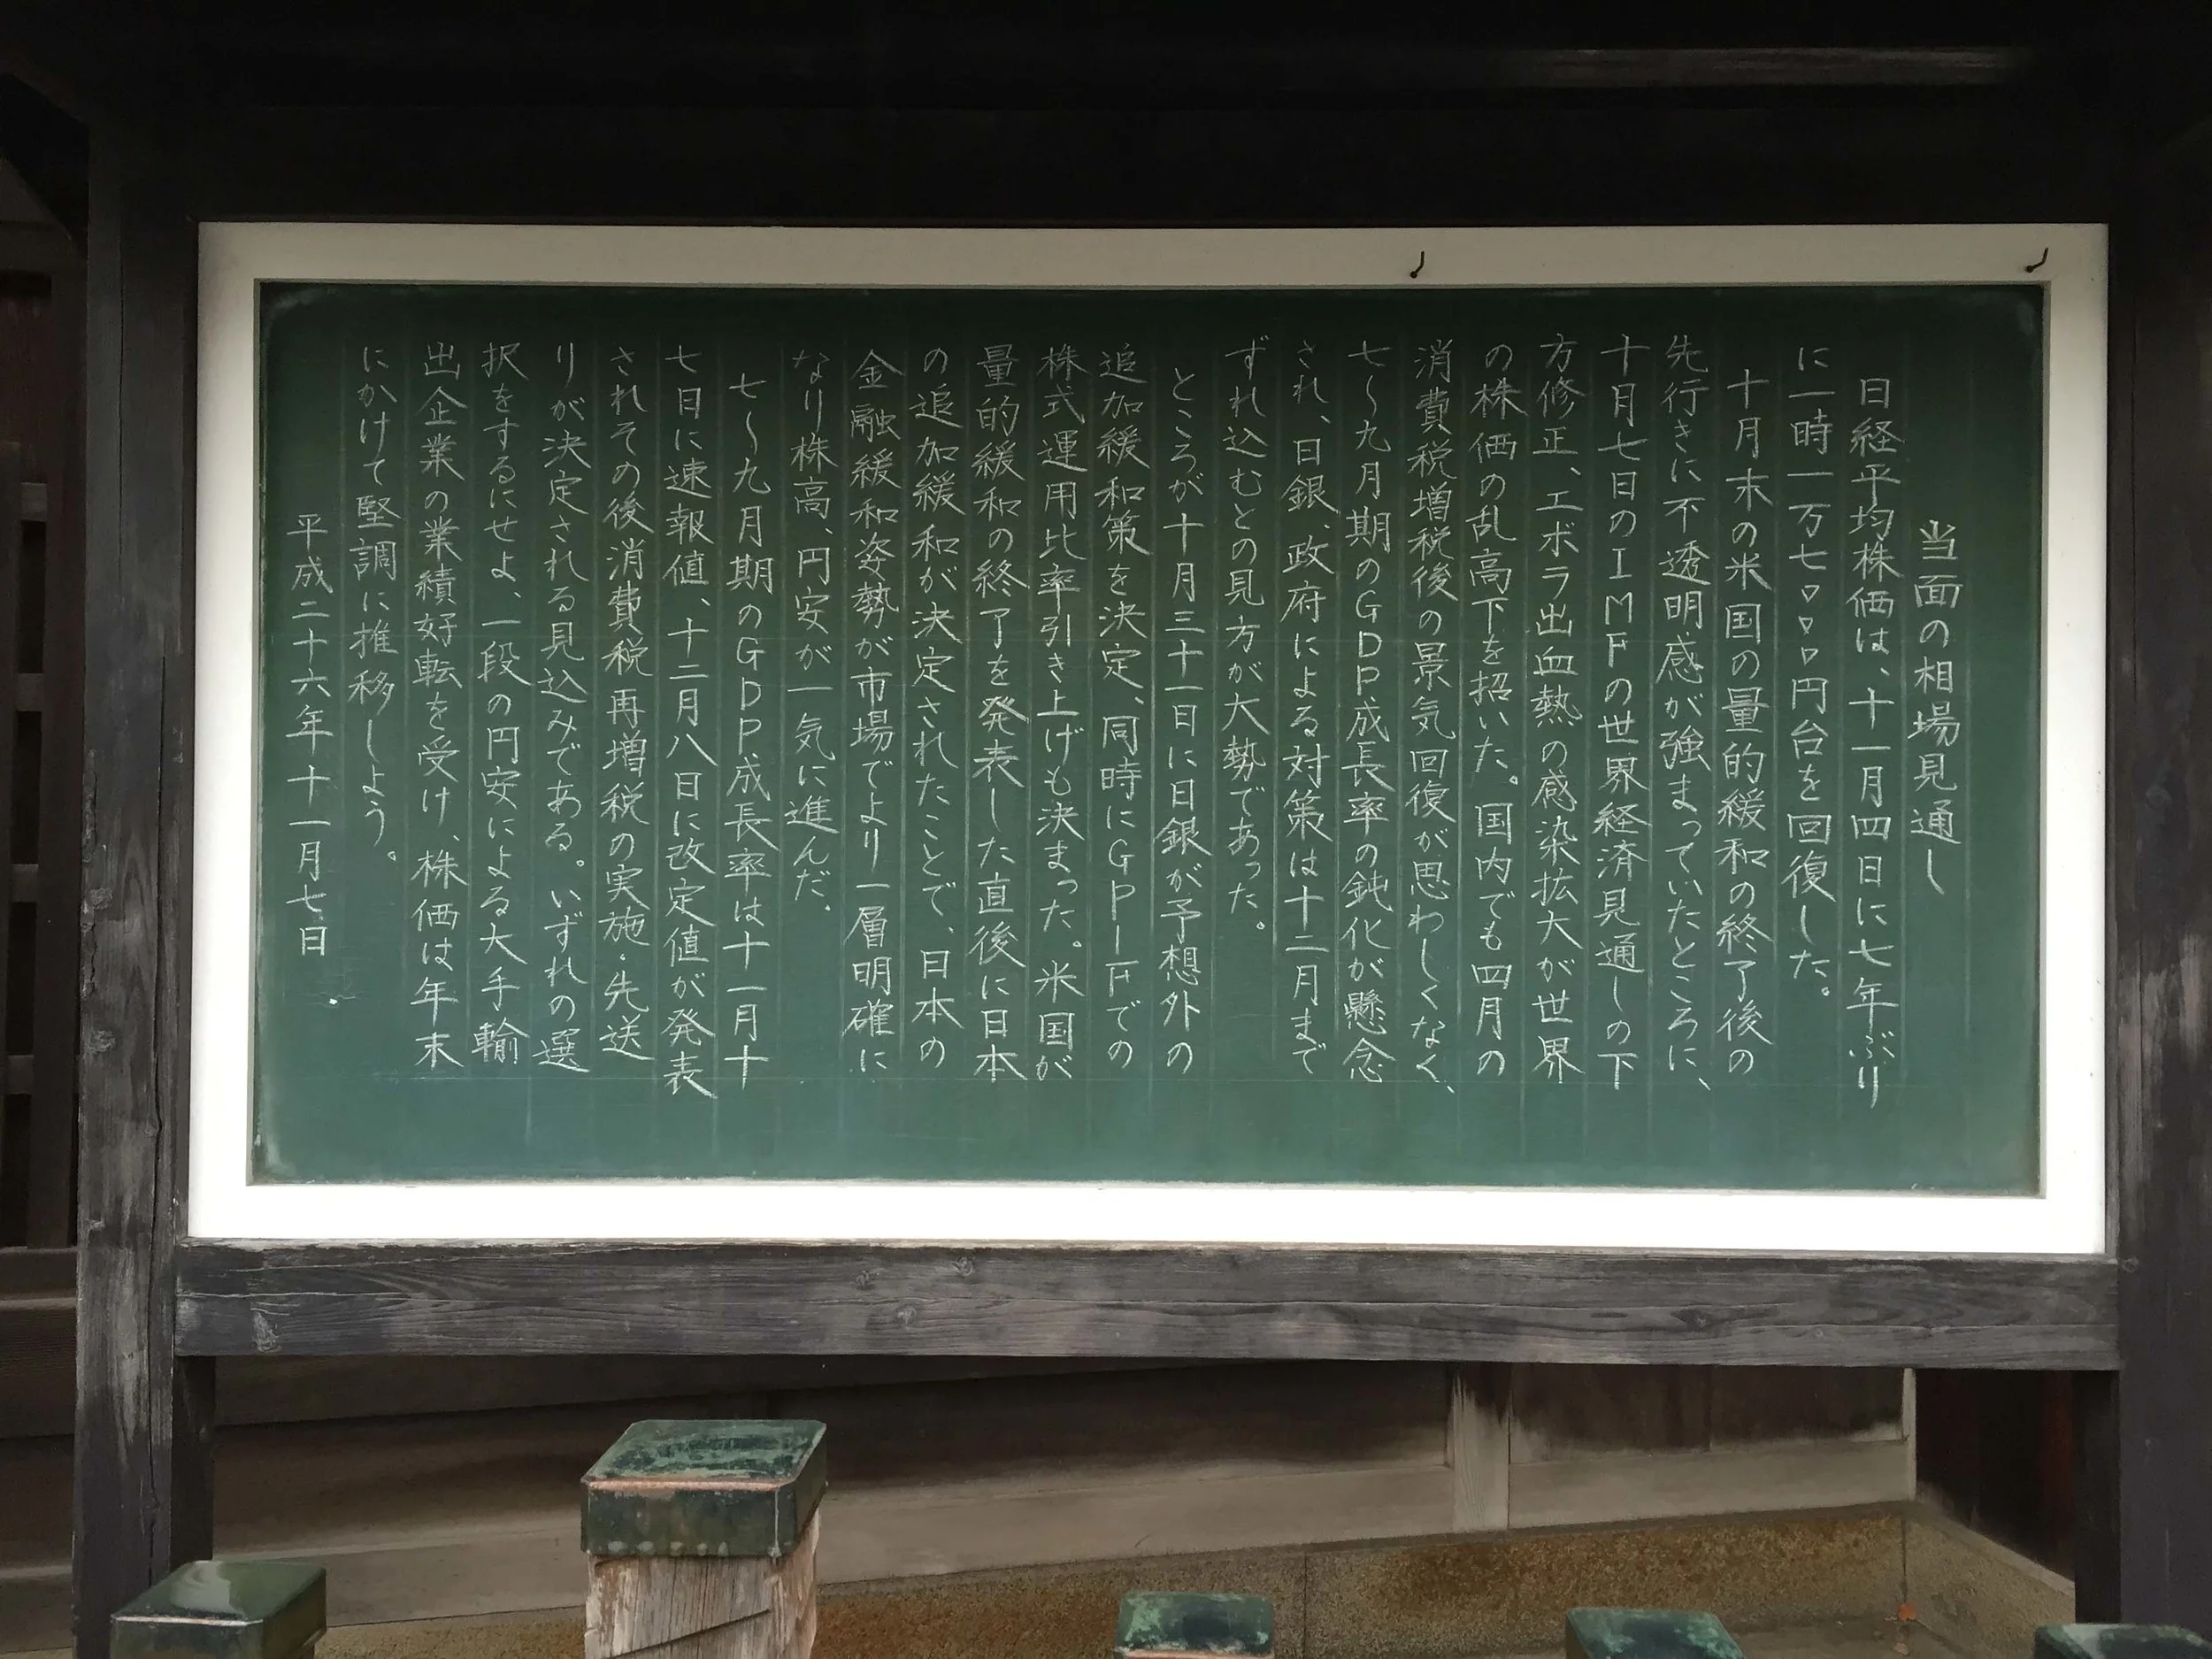 当面の相場見通し
日経平均株価は、十一月四日に七年ぶり
に一時一万七〇〇〇円台を回復した。
十月末の米国の量的緩和の終了後の
先行きに不透明感が強まっていたところに、
十月七日のIMFの世界経済見通しの下
方修正、エボラ出血熱の感染拡大が世界
の株価の乱高下を招いた。国内でも四月の
消費税増税後の景気回復が思わしくなく、
七〜九月期のGDP成長率の鈍化が懸念
され、日銀、政府による対策は十二月まで
ずれ込むとの見方が大勢であった。
ところが十月三十一日に日銀が予想外の
追加緩和策を決定、同時にGPIFでの
株式運用比率引き上げも決まった。米国が
量的緩和の終了を発表した直後に日本
の追加緩和が決定されたことで、日本の
金融緩和姿勢が市場でより一層明確に
なり株高、円安が一気に進んだ。
七〜九月期のGDP成長率は十一月十
七日に速報値、十二月八日に改定値が発表
されその後消費税再増税の実施・先送
りが決定される見込みである。いずれの選
択をするにせよ、一段の円安による大手輸
出企業の業績好転を受け、株価は年末
にかけて堅調に推移しよう。
平成二十六年十一月七日